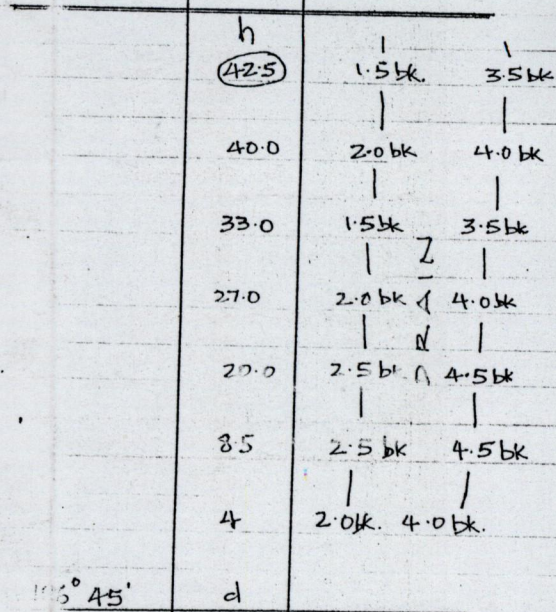 h
42.5 1.5 bk. 3.5 bk
40.0 2.0 bk 4.0 bk
33.0 1.5 bk 3.5 bk
27.0 2.0 bk 4.0 bk
20.0 2.5 bk 4.5 bk
8.5 2.5 bk 4.5 bk
4 2.0 bk. 4.0 bk.
45' d